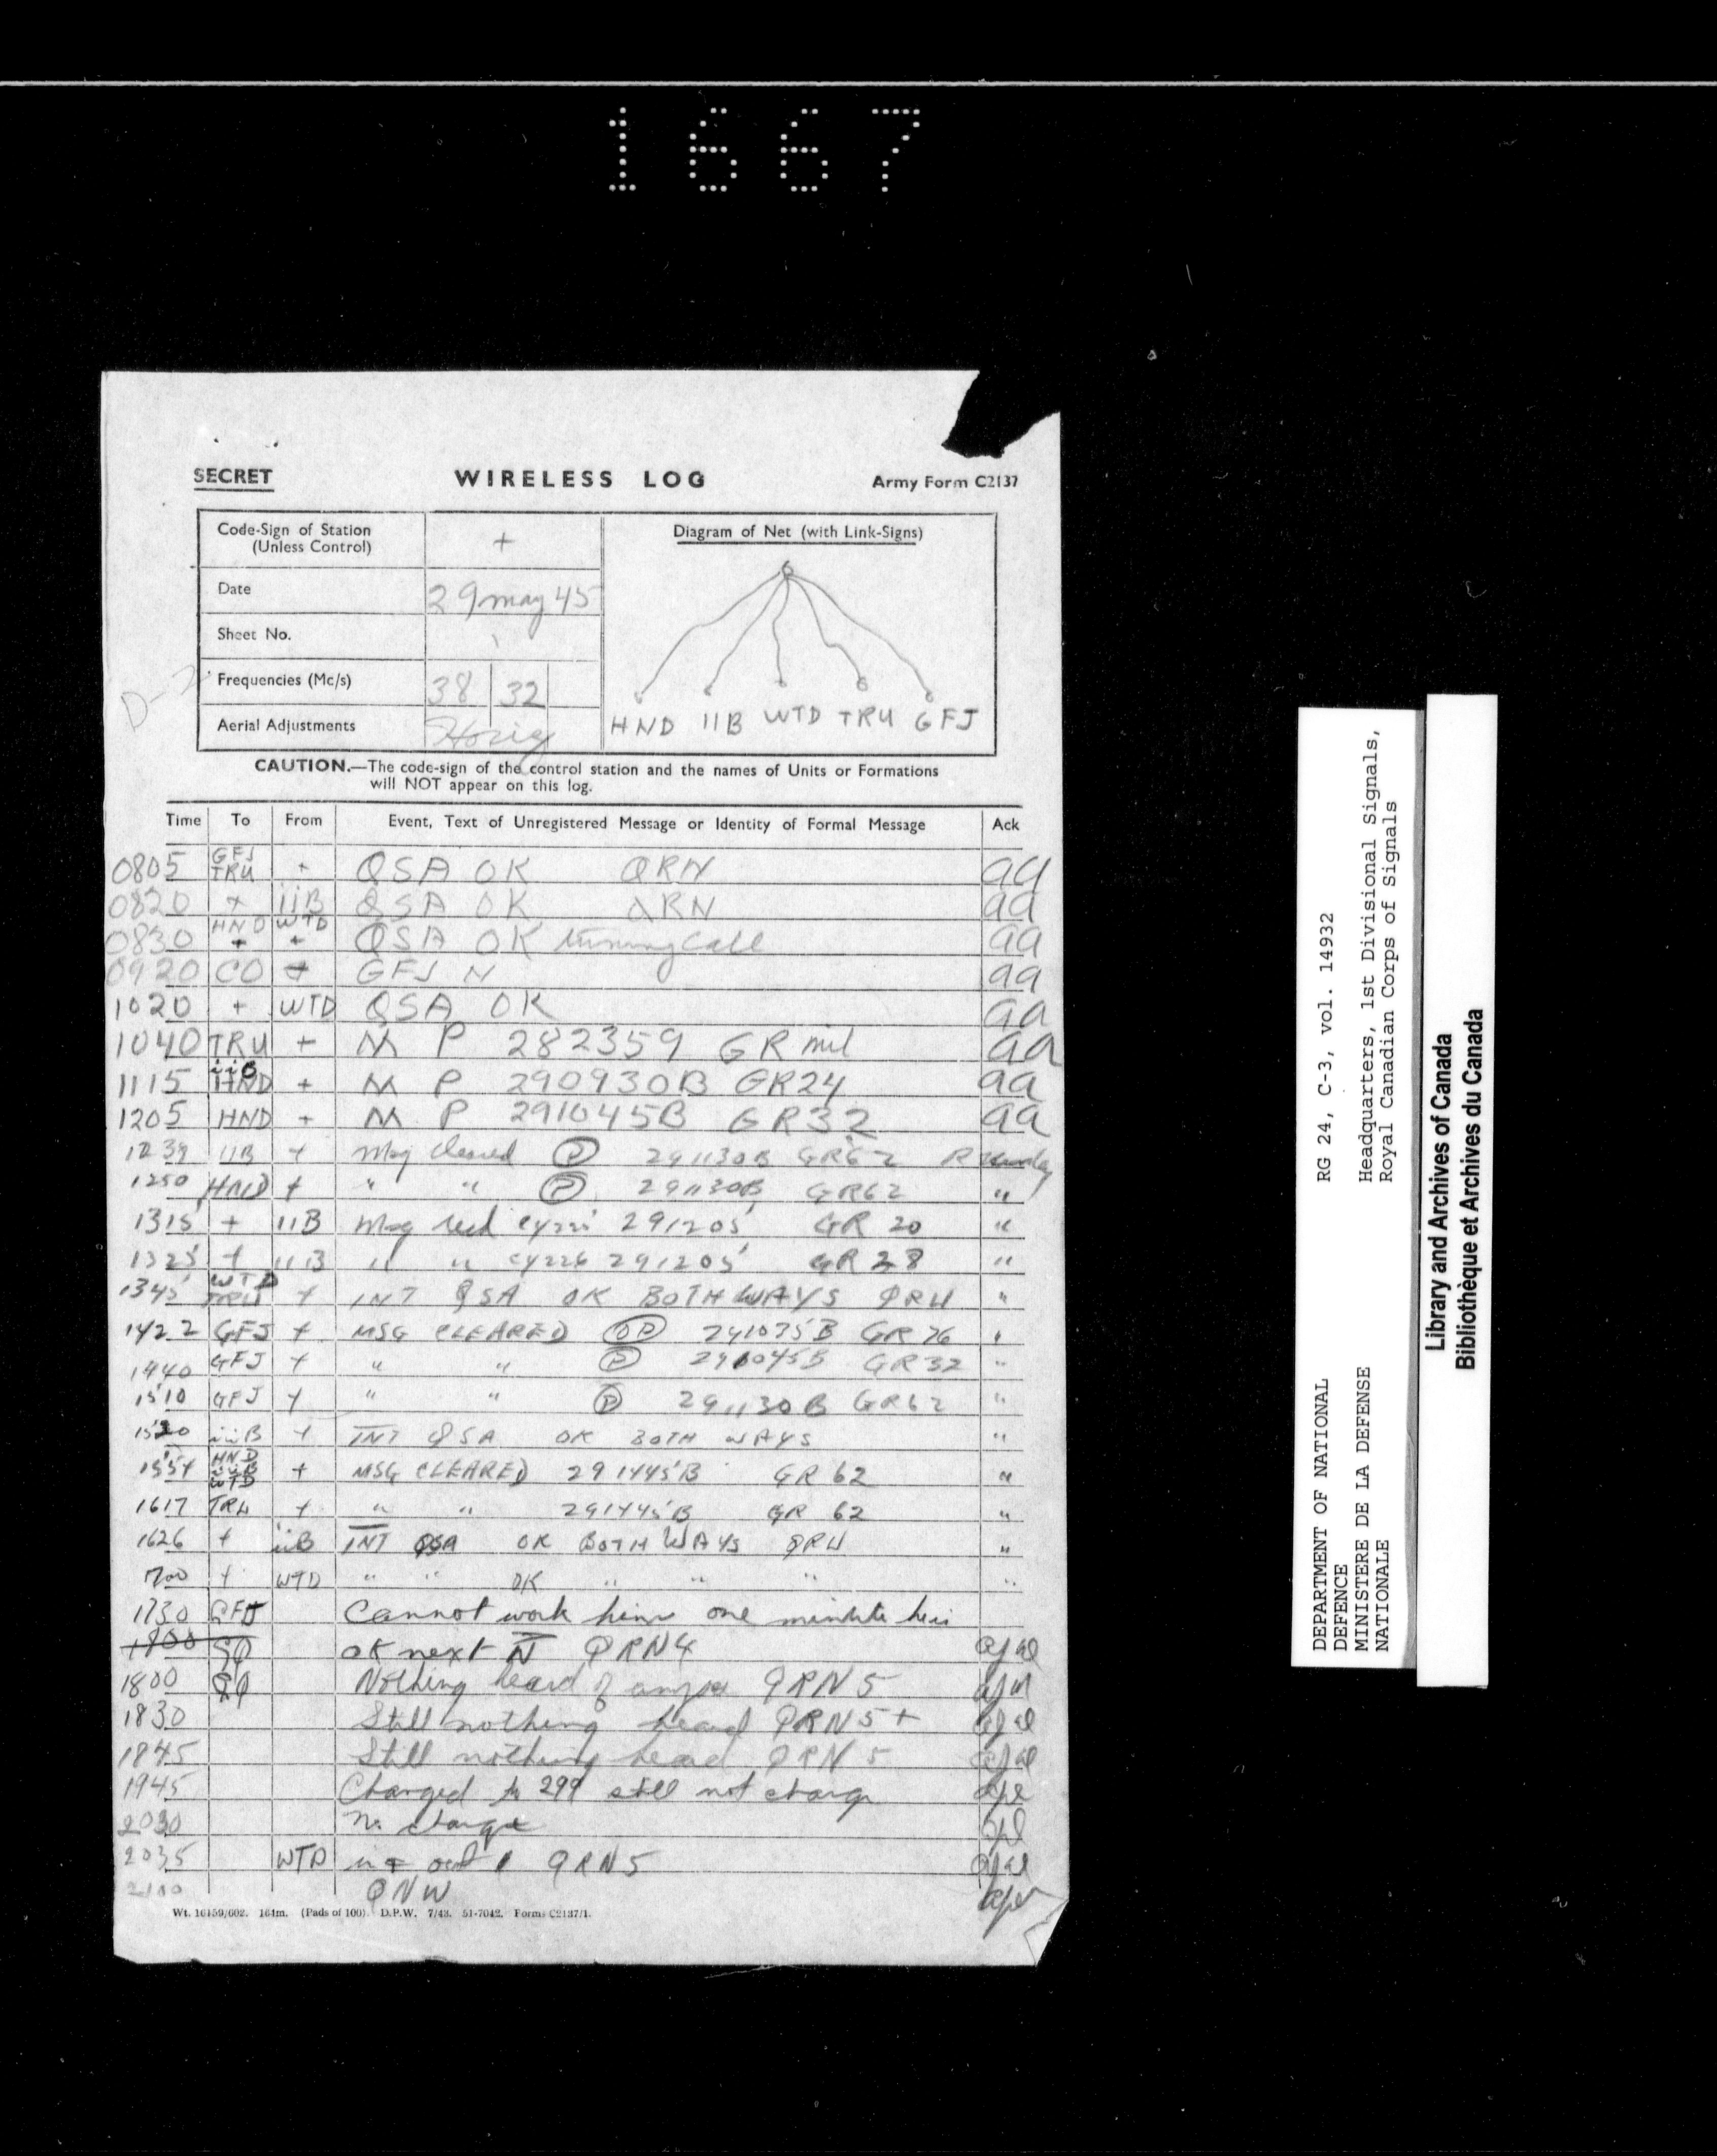 1667
SECRET WIRELESS LOG Army Form C2137
Code-Sign of Station (Unless Control) +
Date 29 may 45
Sheet No. 1
Frequencies (Mc/s) 38 32
Aerial Adjustments
D-2
Diagram of Net (with Link-Signs)
HND 11B WTD TRU GFJ
CAUTION.—The code-sign of the control station and the names of Units or Formations
will NOT appear on this log.
Time To From Event, Text of Unregistered Message or Identity of Formal Message Ack
0805 GFJ TRU + QSA OK QRN aa
0820 + iiB QSA OK QRN aa
0830 HND + WTD + QSA OK tuning call aa
0920 CQ + GFJ N aa
1020 + WTD QSA OK aa
1040 TRU + M P 282359 GR nil aa
1115 HND + M P 290930B GR24 aa
1205 HND + M P 291045B GR32 aa
1239 11B + Msg cleared P 291130B GR62
1250 HND + " " P 291130B GR62 "
1315 + 11B Msg recd 291205 GR 20 "
1325 + 11B " " CY226 291205 GR 28 "
1345 WTD TRU + INT QSA OK BOTH WAYS QRU "
1422 GFJ + MSG CLEARED OP 291035B GR 76 "
1440 GFJ + " " P 291045B GR32 "
1510 GFJ + " " P 291130B GR62 "
1520 iiB + INT QSA OK BOTH WAYS "
1554 HND iiB WTD + MSG CLEARED 291445B GR 62 "
1617 TRU + " " 291445B GR 62 "
1626 + iiB INT QSA OK BOTH WAYS QRU "
1700 + WTD " " OK " " " "
1730 GFJ Cannot work him one minute he is
1800 OK next N QRN4
1800 Nothing heard of QRN 5
1830 Still nothing heard QRN 5+
1845 Still nothing heard QRN 5
1945 Changed to 299 still not change
2030 No change
2035 WTD in + out QRN5
2100 QNW
Wt. 16159/602. 164m. (Pads of 100). D.P.W. 7/43. 51-7042. Forms C2137/1.
DEPARTMENT OF NATIONAL DEFENCE
MINISTERE DE LA DEFENSE NATIONALE
RG 24, C-3, vol. 14932
Headquarters, 1st Divisional Signals,
Royal Canadian Corps of Signals
Library and Archives of Canada
Bibliothèque et Archives du Canada